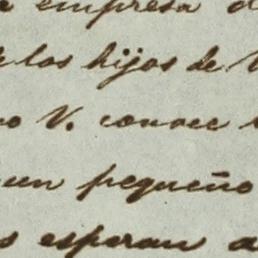 empresa d
los hijos de V
no V. conoce
un pequeño
esperan a